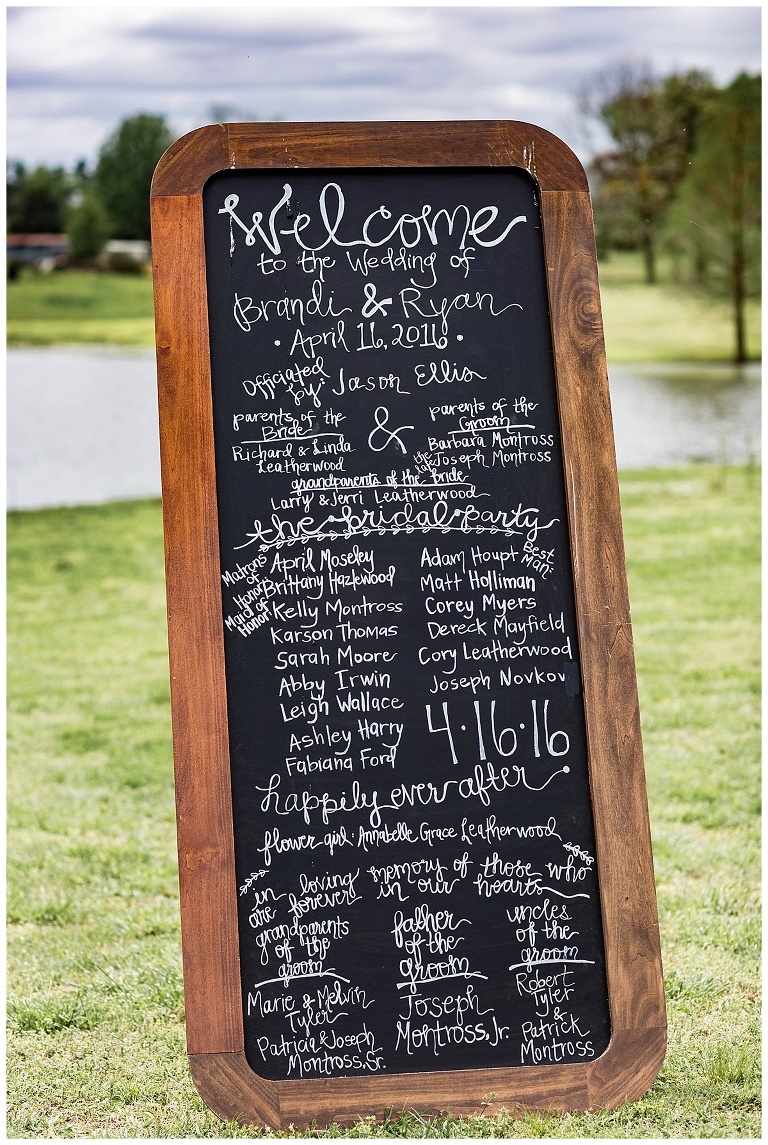 Welcome
to the Wedding of
Brandi & Ryan
• April 16, 2016 •
Officiated by: Jason Ellis
parents of the Bride
Richard & Linda
Leatherwood
&
parents of the Groom
Barbara Montross
the late Joseph Montross
grandparents of the bride
Larry & Jerri Leatherwood
the bridal party
Matrons of Honor
April Moseley
Brittany Hazlewood
Maid of Honor
Kelly Montross
Karson Thomas
Sarah Moore
Abby Irwin
Leigh Wallace
Ashley Harry
Fabiana Ford
Adam Houpt Best Man:
Matt Holliman
Corey Myers
Dereck Mayfield
Cory Leatherwood
Joseph Novkov
4·16·16
happily ever after
flower girl: Annabelle Grace Leatherwood
in loving memory of those who
are forever in our hearts
grandparents
of the
groom
Marie & Melvin
Tyler
Patricia & Joseph
Montross, Sr.
father
of the
groom
Joseph
Montross, Jr.
uncles
of the
groom
Robert
Tyler
&
Patrick
Montross